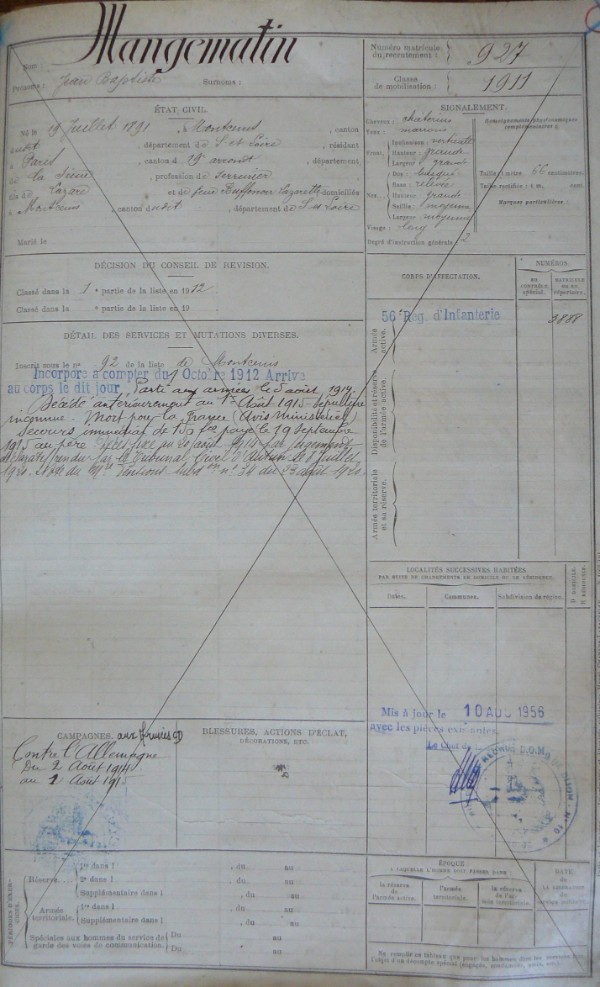 Mangematin
Nom :
Prénoms : Jean Baptiste Surnoms :
Numéro matricule du recrutement : 927
Classe de mobilisation : 1911
ÉTAT CIVIL.
Né le 19 Juillet 1891, à Montcenis, canton
dudit, département de S et Loire, résidant
à Paris, canton d 19e arrondt, département
de la Seine, profession de serrurier
fils de Lazare et de feue Lazarette domiciliés
à Montcenis, canton dudit, département de S et Loire
Marié le
SIGNALEMENT.
Cheveux : châtains
Yeux : marrons
Front. Inclinaison verticale
Hauteur : grande
Largeur : grande
Nez. Dos :
Base : relevée
Hauteur : grande
Saillie : moyenne
Largeur : moyenne
Visage : long
Renseignements physionomiques complémentaires :
Taille : 1 mètre 66 centimètres.
Taille rectifiée : 1 m. cent.
Marques particulières :
Degré d'instruction générale : 2
DÉCISION DU CONSEIL DE REVISION.
Classé dans la 1e partie de la liste en 1912
Classé dans la e partie de la liste en 19
DÉTAIL DES SERVICES ET MUTATIONS DIVERSES.
Inscrit sous le n° 92 de la liste de Montcenis
Incorporé à compter du 9 Octobre 1912 Arrivé
au corps le dit jour, Parti aux armées le 5 août 1914.
Décédé antérieurement au 1er Août 1915 Sépulture
inconnue. Mort pour la France (Avis Ministériel)
Secours immédiat de 150 frs payé le 19 Septembre
1915 au père. Décès fixé au 20 août 1914 par jugement
déclaratif rendu par le Tribunal Civil d'Autun le 8 juillet
1920. du Mre Pensions n° 34 du 23 août 1920
CORPS D'AFFECTATION.
NUMÉROS.
AU CONTRÔLE SPÉCIAL.
MATRICULE OU AU RÉPERTOIRE.
Armée active.
56 Rég. d'Infanterie
3888
Disponibilité et réserve de l'armée active.
Armée territoriale et sa réserve.
LOCALITÉS SUCCESSIVES HABITÉES
PAR SUITE DE CHANGEMENTS DE DOMICILE OU DE RÉSIDENCE.
Dates. Communes. Subdivision de région. D DOMICILE. R RÉSIDENCE.
Mis à jour le 10 AOU 1956
avec les pièces existantes.
Le Chef de
CAMPAGNES. aux Armées
Contre l'Allemagne
Du 2 Août 1914
au 1 Août 1915
BLESSURES, ACTIONS D'ÉCLAT,
DÉCORATIONS, ETC.
Réserve
1re dans l , du au
2e dans l , du au
Supplémentaire dans l , du au
Armée territoriale.
1re dans l , du au
Supplémentaire dans l , du au
Spéciales aux hommes du service de garde des voies de communication.
Du au
Du au
ÉPOQUE
À LAQUELLE L'HOMME DOIT PASSER DANS :
la réserve de l'armée active.
l'armée territoriale.
la réserve de l'armée territoriale.
DATE
de
LA LIBÉRATION